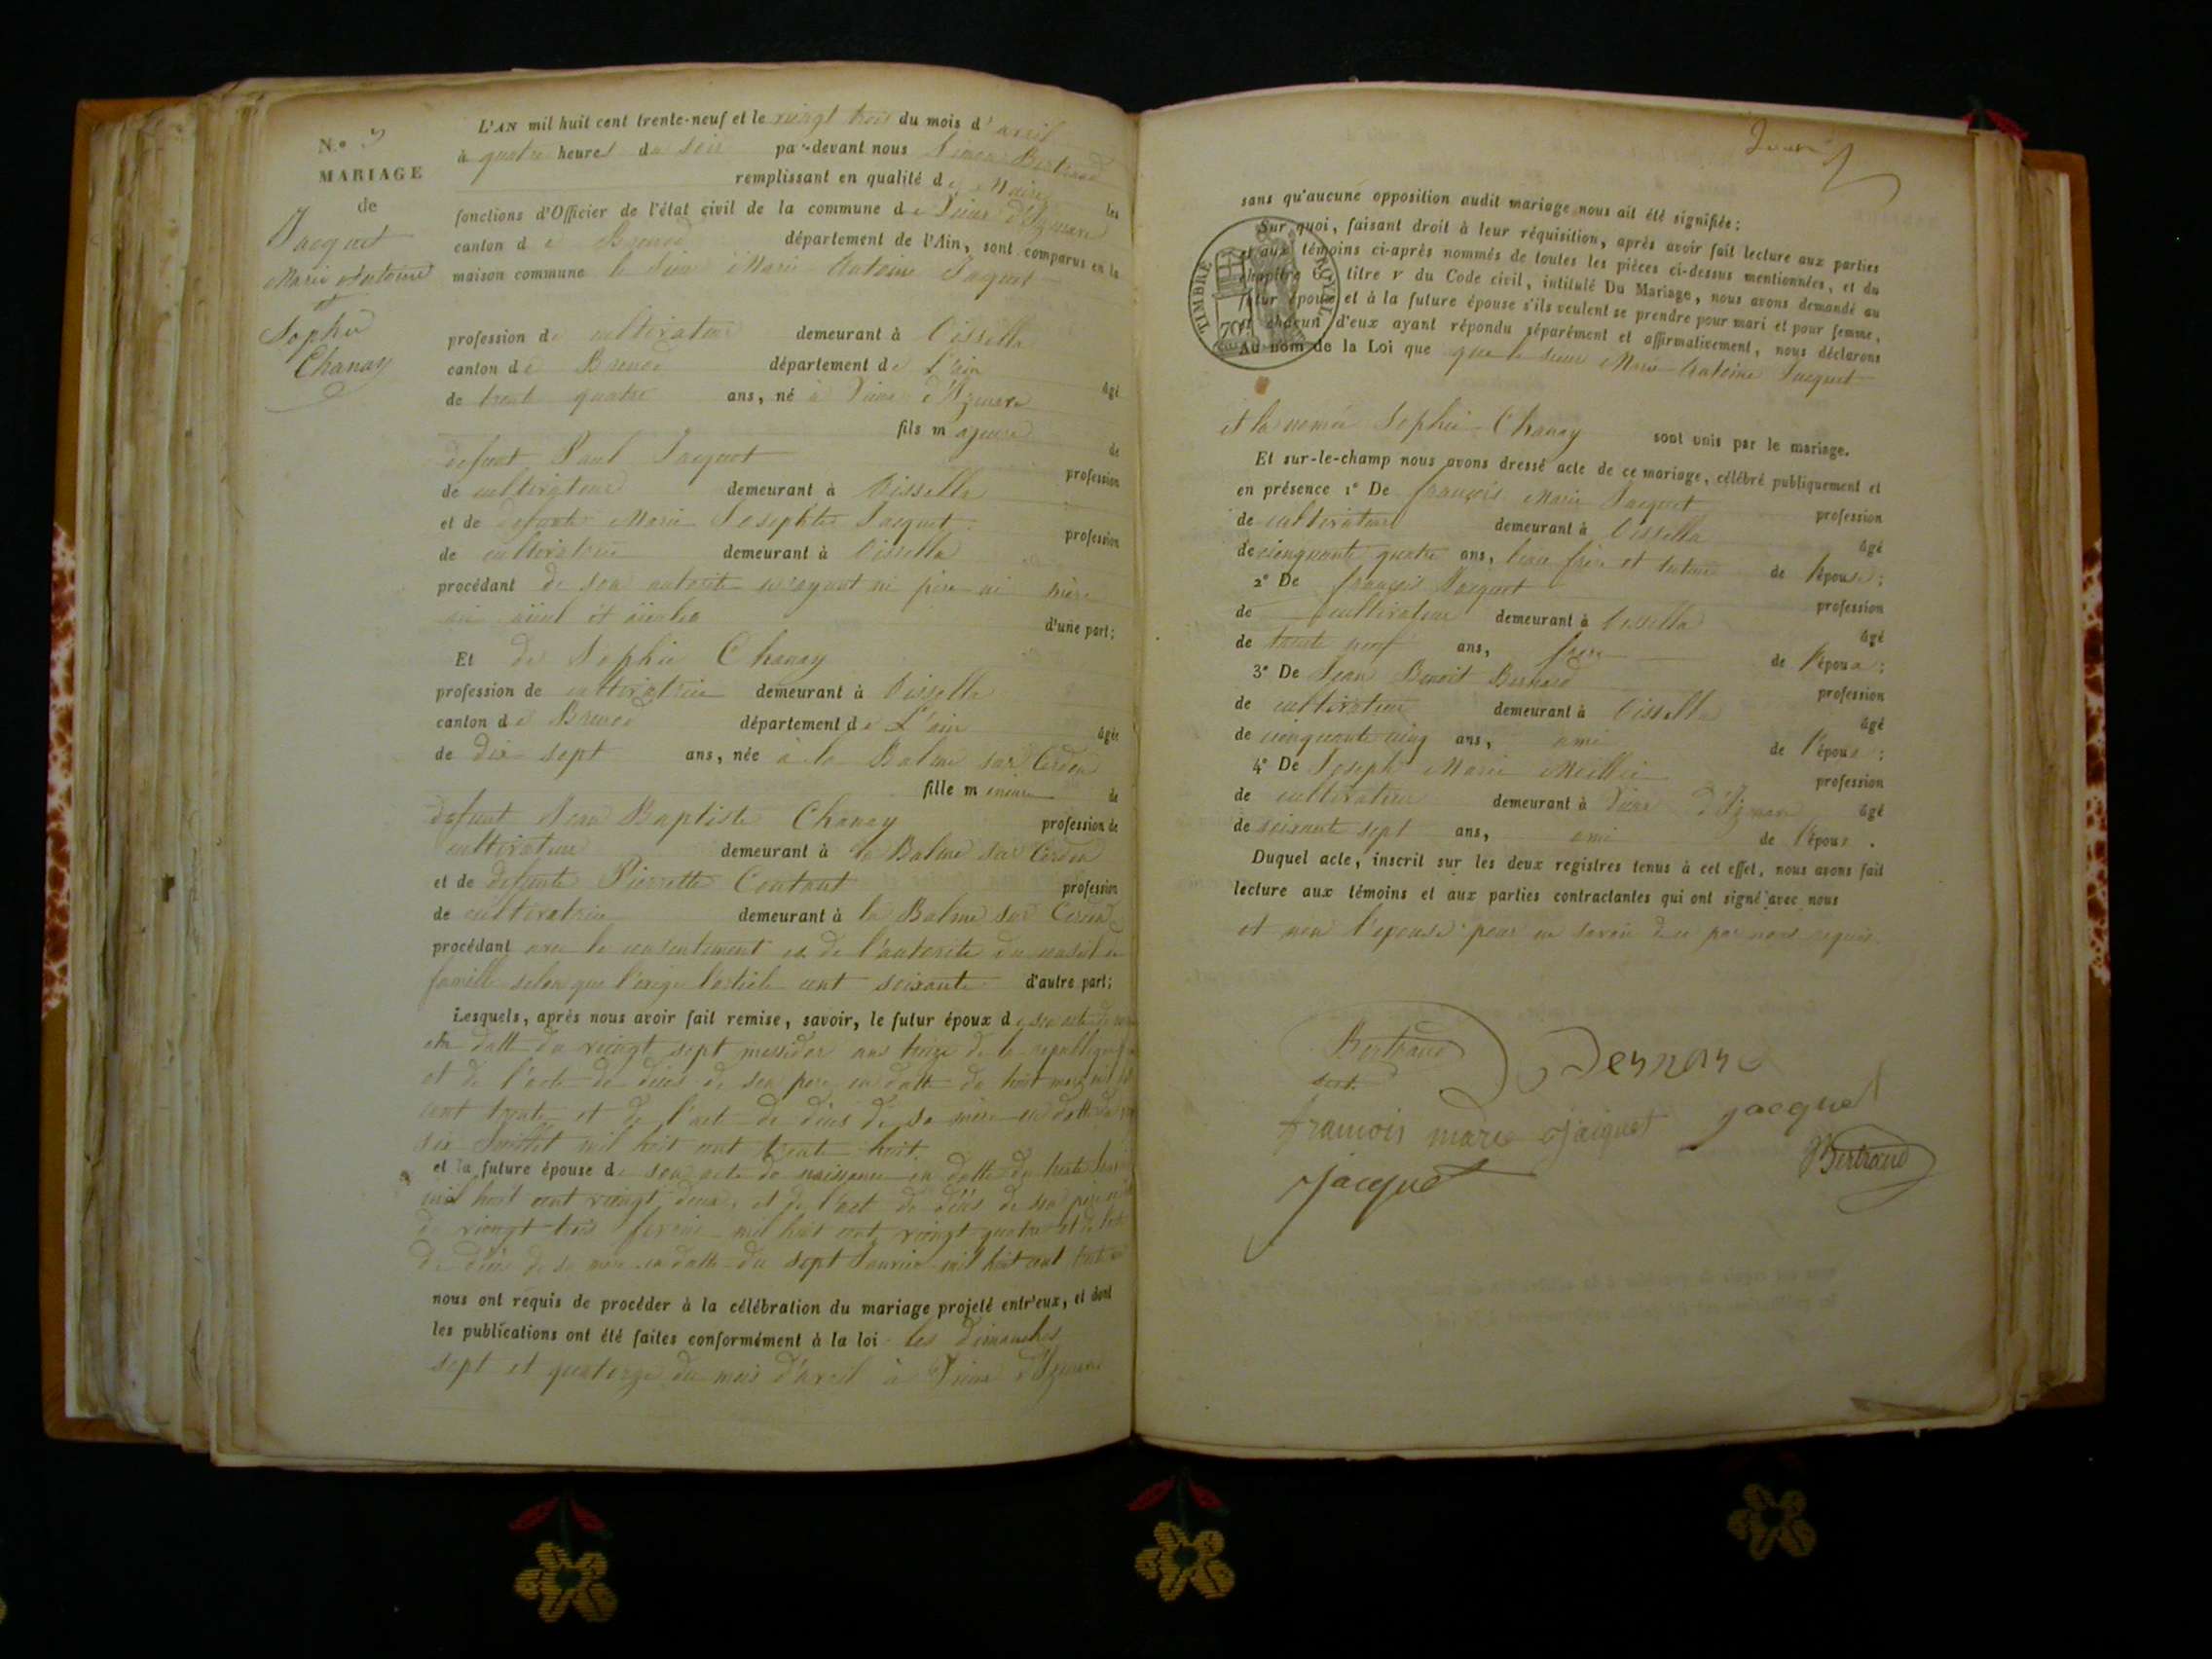 N.º 5
MARIAGE
de
Jacquet
Marie Antoine
et
Sophie
Chanay
L'AN mil huit cent trente-neuf et le vingt trois du mois d'avril
à quatre heures du soir par-devant nous Simon Bertrand
remplissant en qualité de Maire les
fonctions d'Officier de l'état civil de la commune de Vieux d'Izenave
canton de Brenod département de l'Ain, sont comparus en la
maison commune le Sieur Marie Antoine Jacquet
profession de cultivateur demeurant à Oissella
canton de Brenod département de l'ain
âgé
de trente quatre ans, né à Vieux d'Izenave
fils majeur de
defunt Paul Jacquet profession
de cultivateur demeurant à Oissella
et de defunte Marie Josephte Jacquet profession
de cultivatrice demeurant à Oissella
procédant de son autorité n'ayant ni père ni mère
ni aieul et aieules d'une part;
Et de Sophie Chanay
profession de cultivatrice demeurant à Oissella
canton de Brenod département de L'ain
âgée
de dix sept ans, née à la Balme sur Cerdon
fille mineure de
defunt Jean Baptiste Chanay profession de
cultivateur demeurant à la Balme sur Cerdon
et de defunte Pierrette Contant profession
de cultivatrice demeurant à la Balme sur Cerdon
procédant avec le consentement et de l'autorité du conseil de
famille selon que l'exige l'article cent soixante d'autre part;
Lesquels, après nous avoir fait remise, savoir, le futur époux de son acte de
en datte du vingt sept messidor ans treize de la republique
et de l'acte de décès de son père en datte du huit mars mil
cent trente et de l'acte de décès de sa mère en datte du
six Juillet mil huit cent trente huit
et la future épouse de son acte de naissance en datte du trente
mil huit cent vingt deux, et de l'acte de décès de son père
du vingt trois fevrier mil huit cent vingt quatre et de l'acte
de décès de sa mère en datte du sept Janvier mil huit cent
nous ont requis de procéder à la célébration du mariage projeté entr'eux, et dont
les publications ont été faites conformément à la loi les dimanches
sept et quatorze du mois d'avril à Vieux d'Izenave
sans qu'aucune opposition audit mariage nous ait été signifiée;
Sur quoi, faisant droit à leur réquisition, après avoir fait lecture aux parties
et aux témoins ci-après nommés de toutes les pièces ci-dessus mentionnées, et du
chapitre 6, titre v du Code civil, intitulé Du Mariage, nous avons demandé au
futur époux et à la future épouse s'ils veulent se prendre pour mari et pour femme,
et chacun d'eux ayant répondu séparément et affirmativement, nous déclarons
Au nom de la Loi que que le sieur Marie Antoine Jacquet
TIMBRE ROYAL
et la nomée Sophie Chanay sont unis par le mariage.
Et sur-le-champ nous avons dressé acte de ce mariage, célébré publiquement et
en présence 1º De françois Marie Jacquet profession
de cultivateur demeurant à Oissella âgé
de cinquante quatre ans, beau frère et tuteur de l'épouse;
2º De françois Jacquet profession
de cultivateur demeurant à Oissella âgé
de trente neuf ans, frère de l'époux;
3º De Jean Benoit Bernard profession
de cultivateur demeurant à Oissella âgé
de cinquante cinq ans, ami de l'époux;
4º De Joseph Marie Meillie profession
de cultivateur demeurant à Vieux d'Izenave âgé
de soixante sept ans, ami de l'époux.
Duquel acte, inscrit sur les deux registres tenus à cet effet, nous avons fait
lecture aux témoins et aux parties contractantes qui ont signé avec nous
et non l'épouse pour ne savoir de ce par nous requis
Bertrand
francois marie Jaiquet
jacquet
jacquet
Bertrand